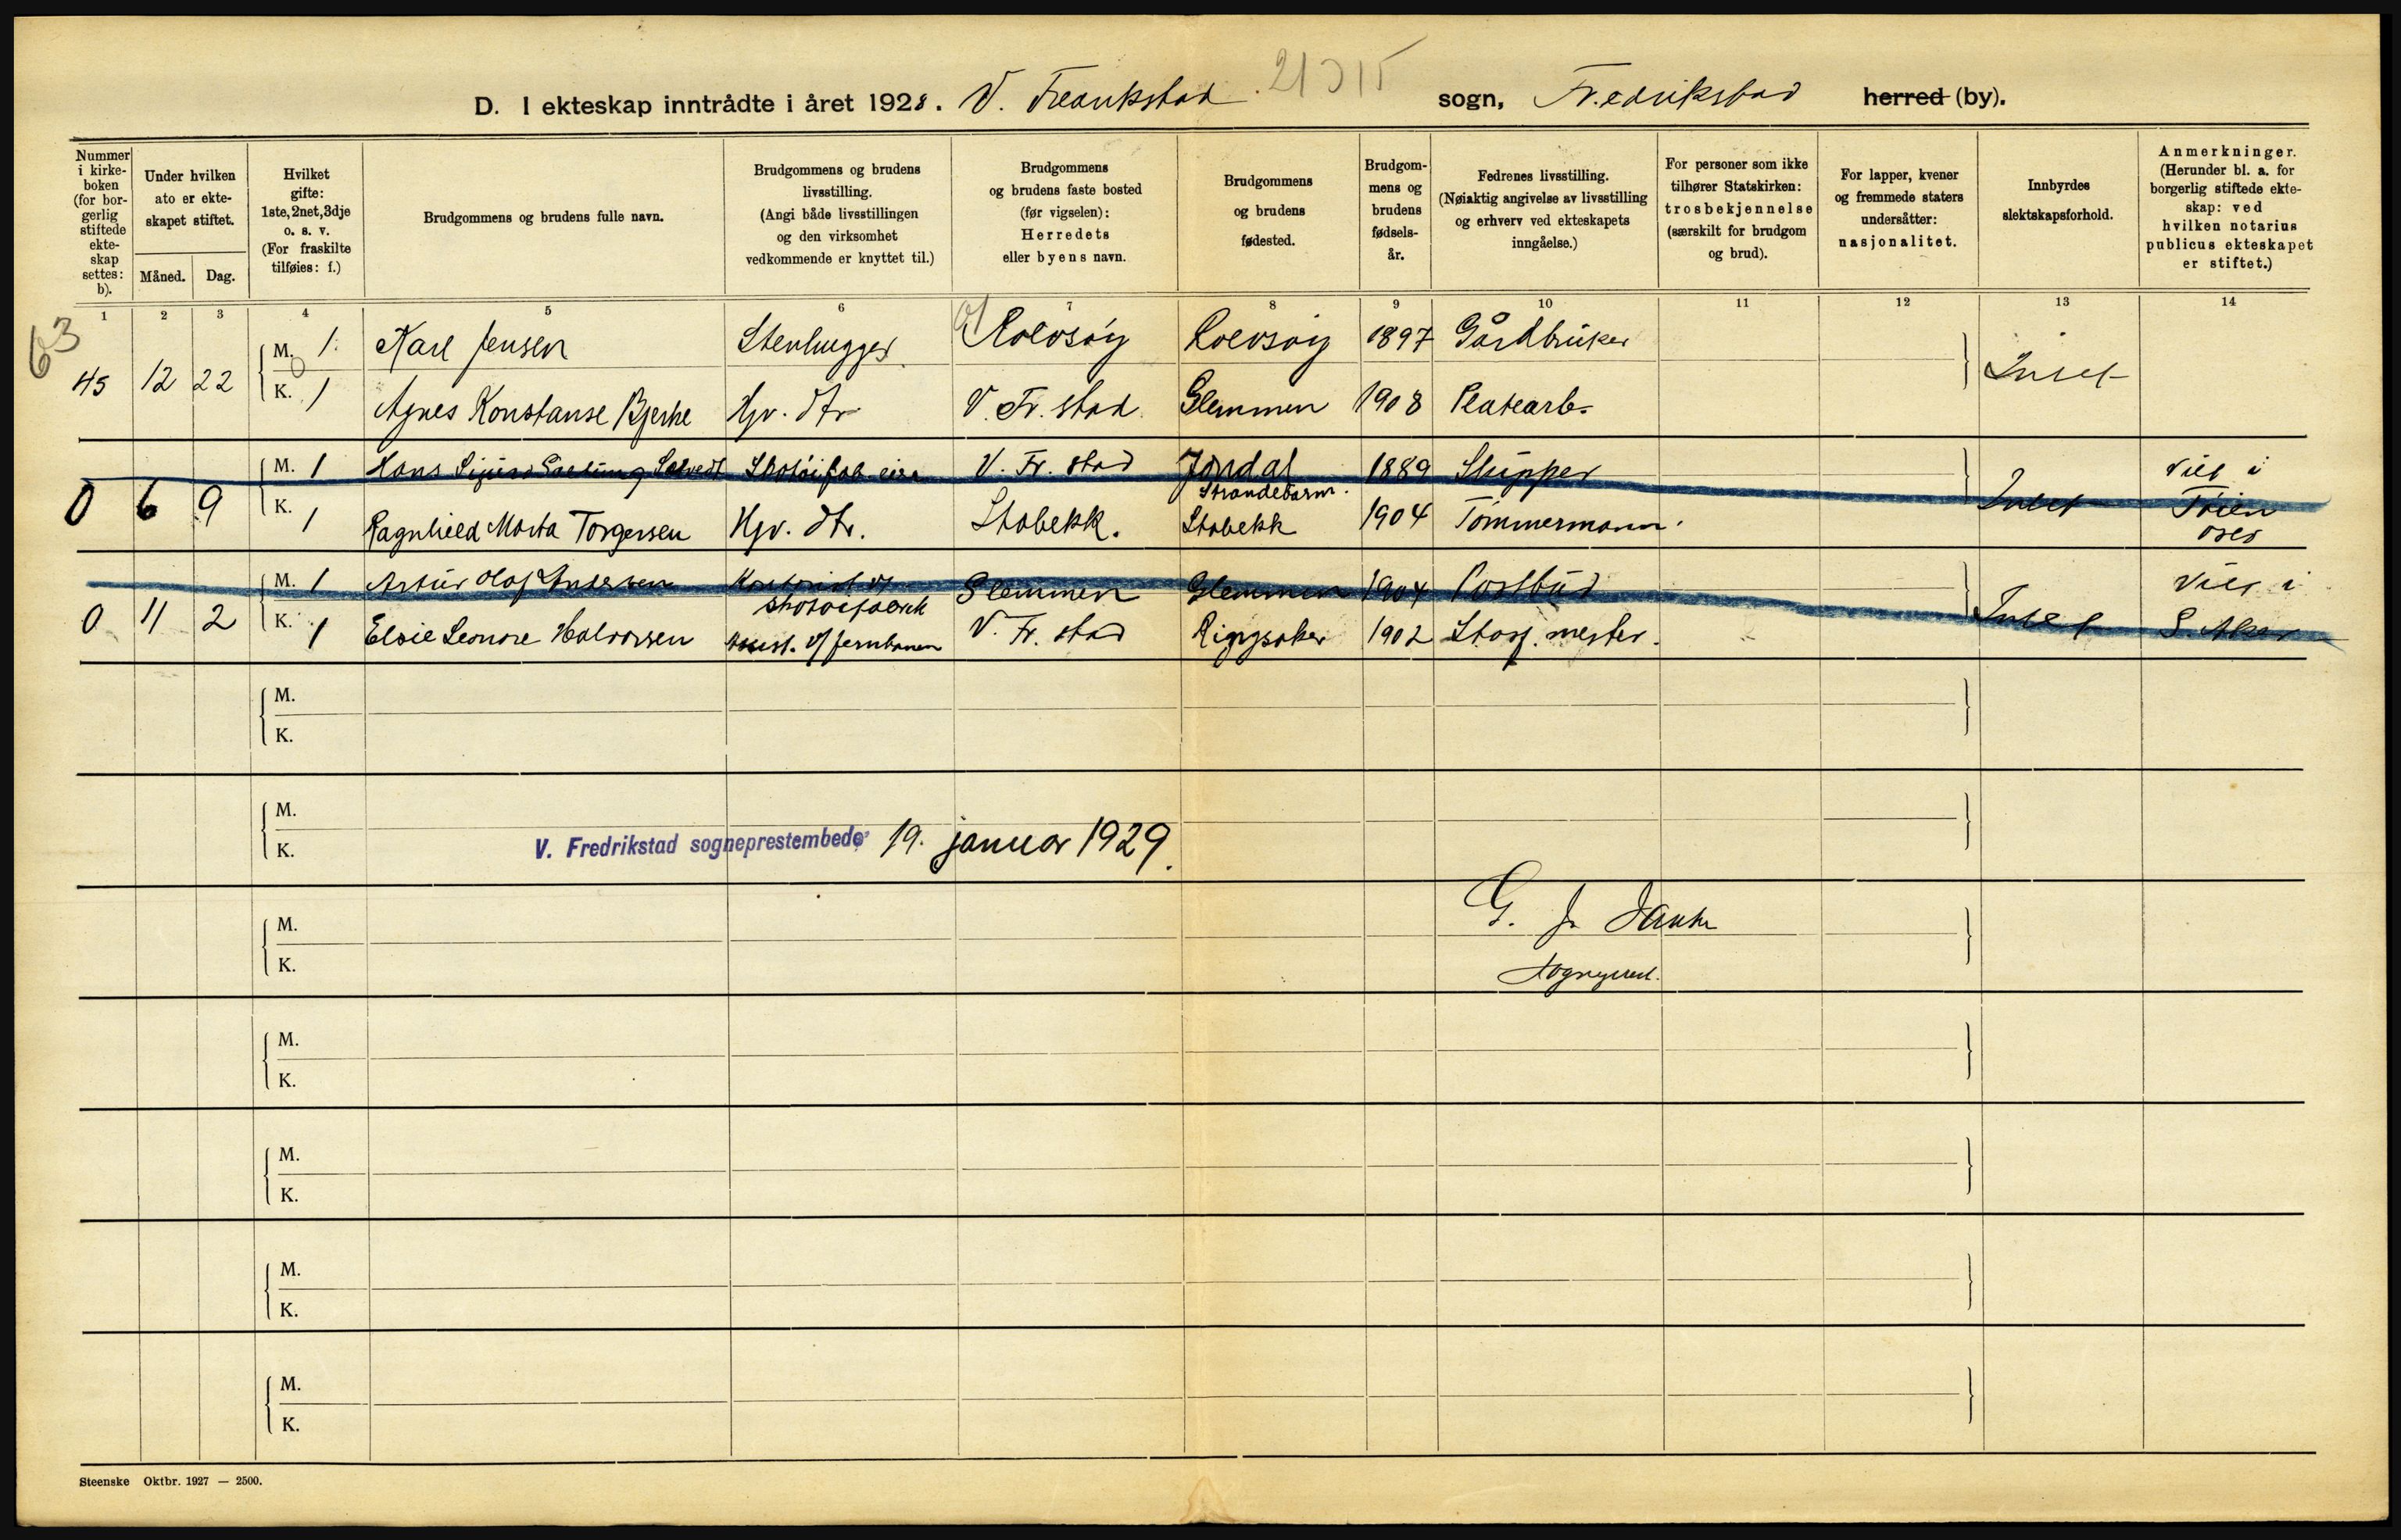 D. I ekteskap inntrådte i året 1928. V. Fredrikstad 21315 sogn, Fredrikstad herred (by).
Nummer i kirkeboken (for borgerlig stiftede ekteskap settes: b).
Under hvilken ato er ekteskapet stiftet.
Måned. Dag.
Hvilket gifte: 1ste, 2net, 3dje o. s. v. (For fraskilte tilføies: f.)
Brudgommens og brudens fulle navn.
Brudgommens og brudens livsstilling. (Angi både livsstillingen og den virksomhet vedkommende er knyttet til.)
Brudgommens og brudens faste bosted (før vigselen): Herredets eller byens navn.
Brudgommens og brudens fødested.
Brudgommens og brudens fødselsår.
Fedrenes livsstilling. (Nøiaktig angivelse av livsstilling og erhverv ved ekteskapets inngåelse.)
For personer som ikke tilhører Statskirken: trosbekjennelse (særskilt for brudgom og brud).
For lapper, kvener og fremmede staters undersåtter: nasjonalitet.
Innbyrdes slektskapsforhold.
Anmerkninger. (Herunder bl. a. for borgerlig stiftede ekteskap: ved hvilken notarius publicus ekteskapet er stiftet.)
1 2 3 4 5 6 7 8 9 10 11 12 13 14
63
M. 1 Karl Jensen Stenhugger Rolvsøy Rolvsøy 1897 Gårdbruker
45 12 22 Intet
K. 1 Agnes Konstanse Bjerke Hjv. dtr V. Fr.stad Glemmen 1908 Platearb.
M. 1 Hans Sigurd Solvedt Skotøifab. eier V. Fr. stad Jondal 1889 Skipper Viet i
Strandebarm.
0 6 9 Intet Tøien
K. 1 Ragnhild Marta Torgersen Hjv. dtr. Stabekk. Stabekk 1904 Tømmermann. Oslo
M. 1 Artur Olaf Andersen Kontorist v/ Glemmen Glemmen 1904 Postbud Viet i
skotøifabrik
0 11 2 Intet S. Aker
K. 1 Elsie Leonore Halvorsen Assist. v/ jernbanen V. Fr. stad Ringsaker 1902 Stasj. mester.
M.
K.
M.
V. Fredrikstad sogneprestembede 19. januar 1929.
K.
M.
G. J.
K.
sogneprest.
M.
K.
M.
K.
M.
K.
M.
K.
Steenske Oktbr. 1927 — 2500.